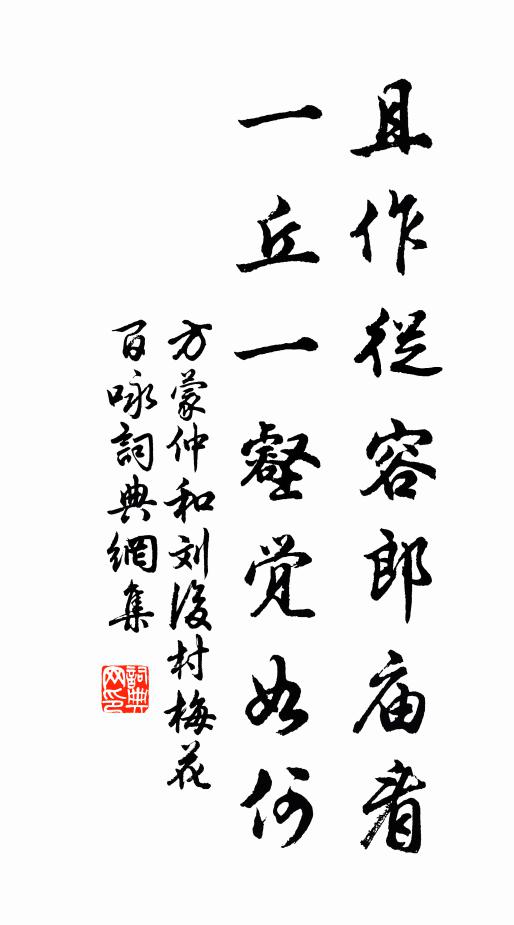 且作從容郎庙看
一丘一壑觉如何
方蒙仲和刘後村梅花
百咏詞典網集
詞典网印